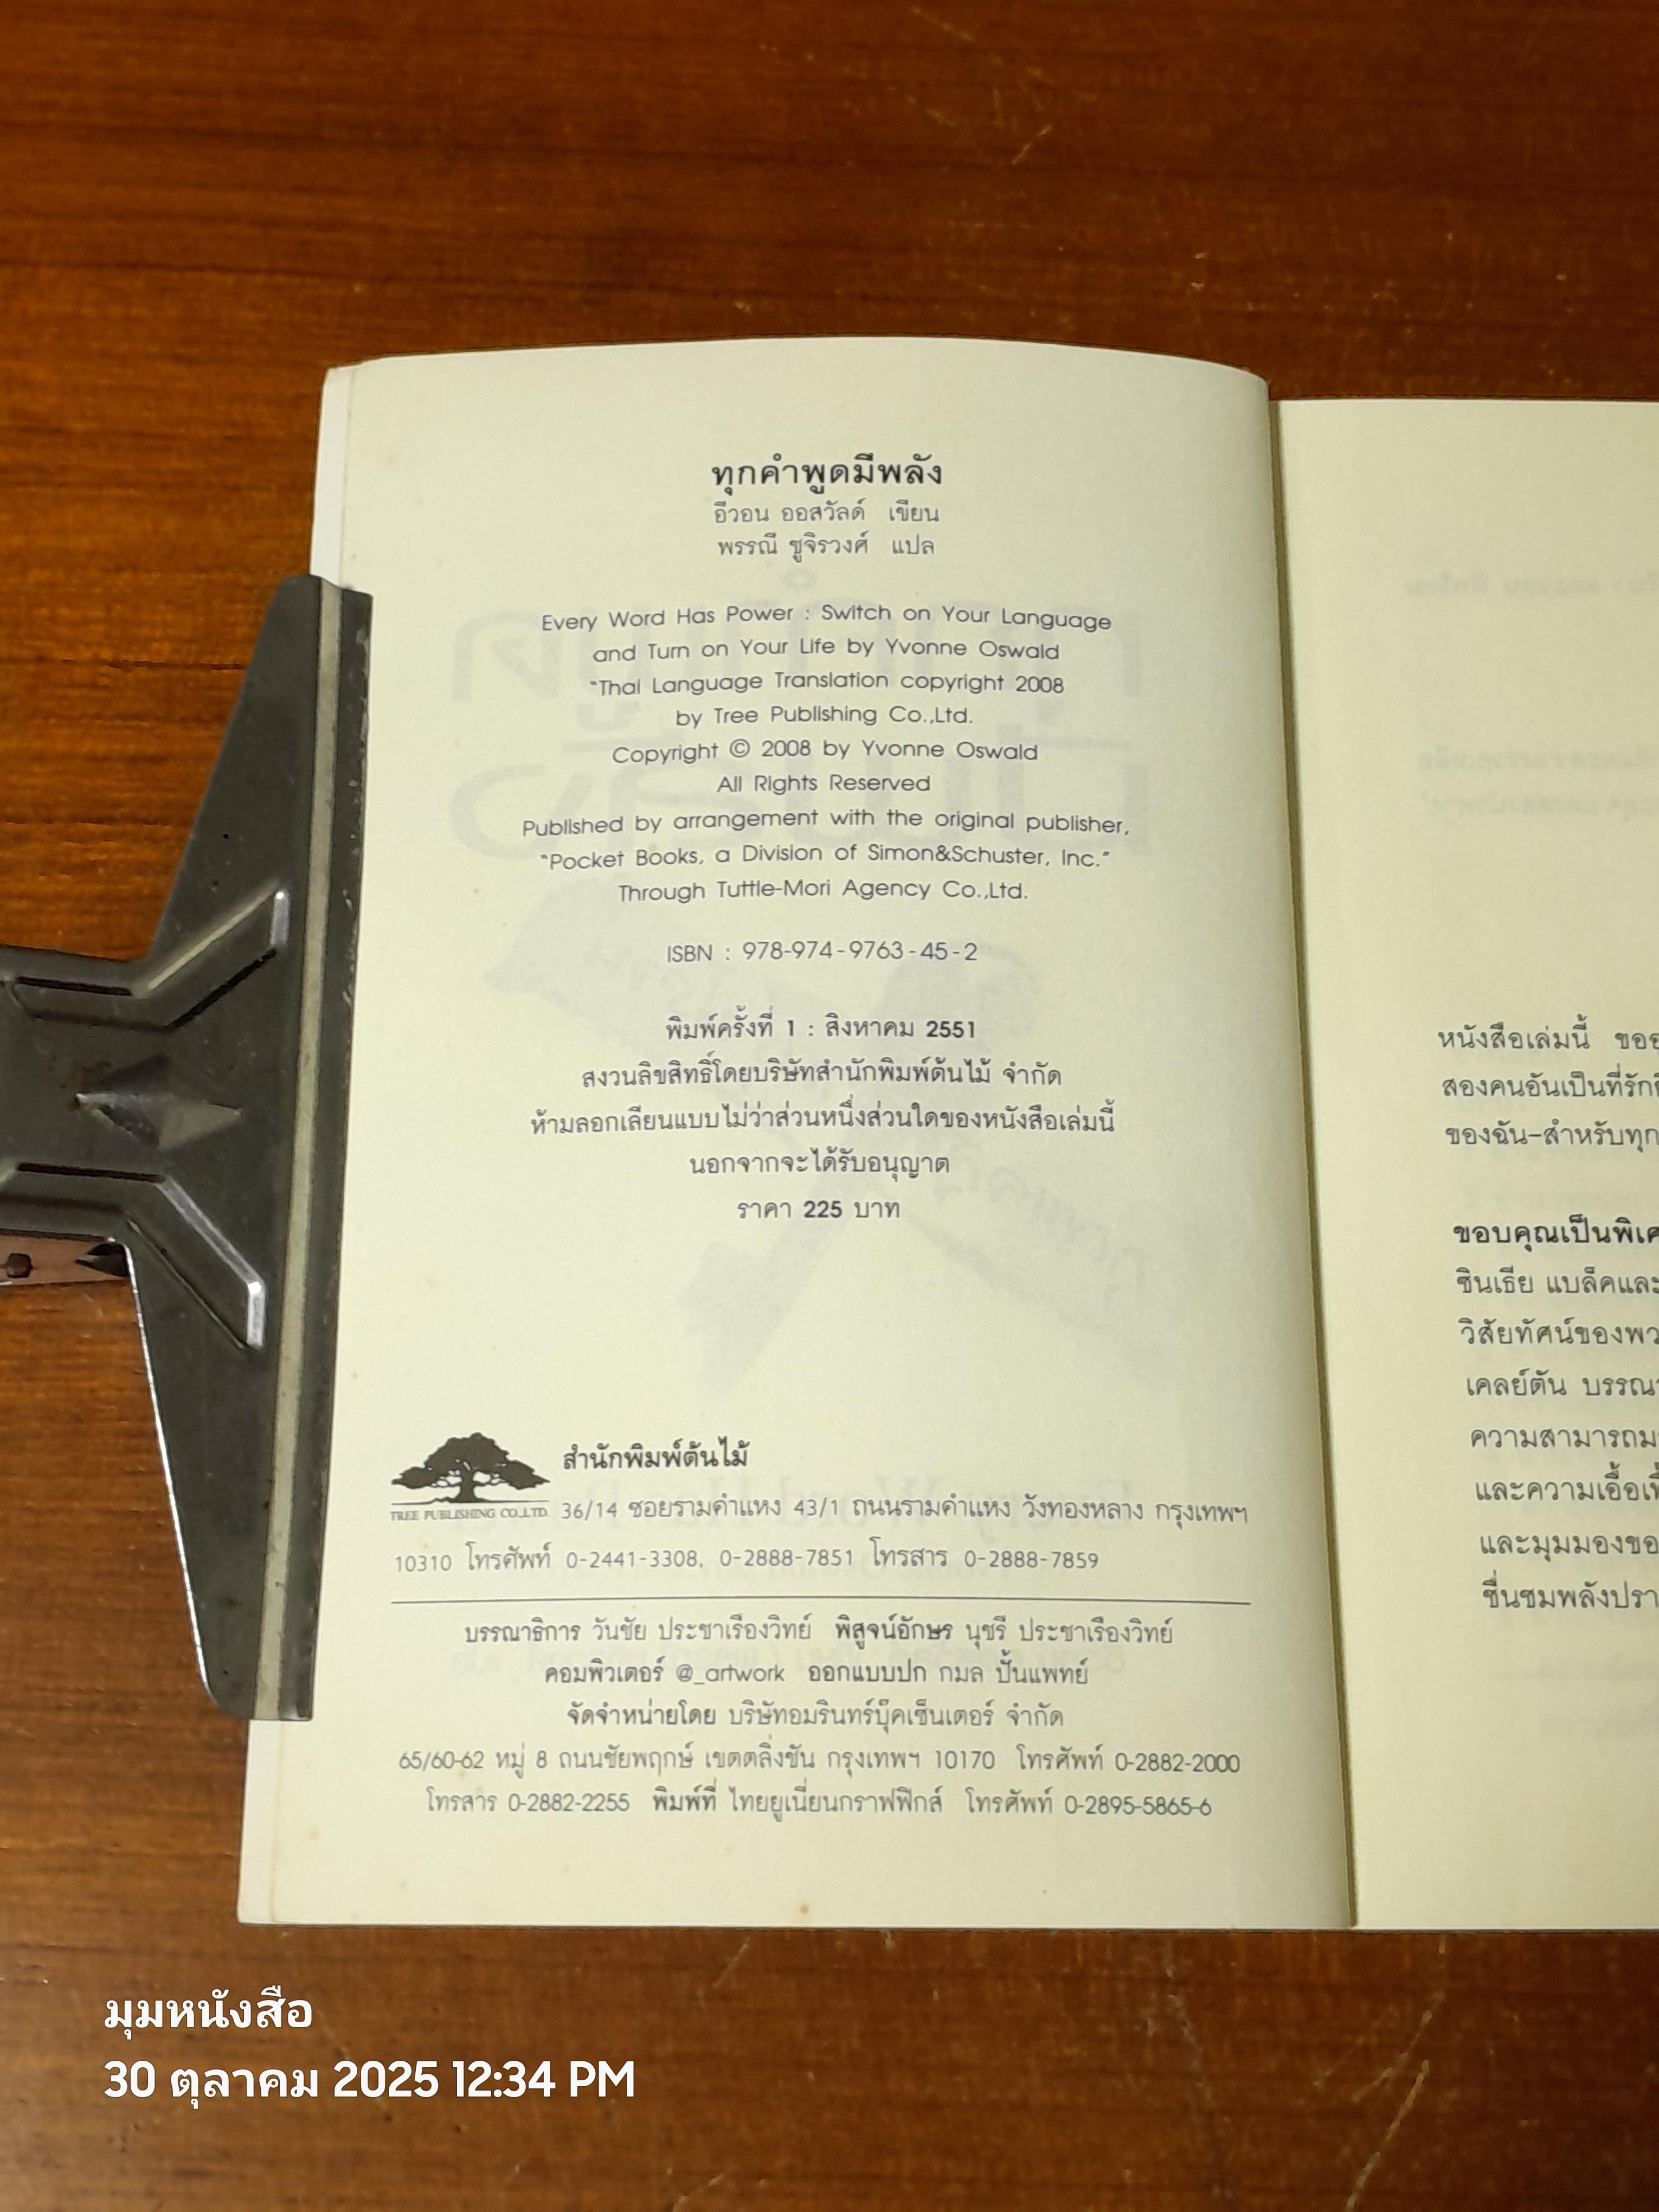 ทุกคำพูดมีพลัง
อีวอน ออสวัลด์ เขียน
พรรณี ชูจิรวงศ์ แปล
Every Word Has Power : Switch on Your Language
and Turn on Your Life by Yvonne Oswald
"Thai Language Translation copyright 2008
by Tree Publishing Co.,Ltd.
Copyright © 2008 by Yvonne Oswald
All Rights Reserved
Published by arrangement with the original publisher,
"Pocket Books, a Division of Simon&Schuster, Inc."
Through Tuttle-Mori Agency Co.,Ltd.
ISBN : 978-974-9763-45-2
พิมพ์ครั้งที่ 1 : สิงหาคม 2551
สงวนลิขสิทธิ์โดยบริษัทสำนักพิมพ์ต้นไม้ จำกัด
ห้ามลอกเลียนแบบไม่ว่าส่วนหนึ่งส่วนใดของหนังสือเล่มนี้
นอกจากจะได้รับอนุญาต
ราคา 225 บาท
สำนักพิมพ์ต้นไม้
TREE PUBLISHING CO.,LTD. 36/14 ซอยรามคำแหง 43/1 ถนนรามคำแหง วังทองหลาง กรุงเทพฯ
10310 โทรศัพท์ 0-2441-3308, 0-2888-7851 โทรสาร 0-2888-7859
บรรณาธิการ วันชัย ประชาเรืองวิทย์ พิสูจน์อักษร นุชรี ประชาเรืองวิทย์
คอมพิวเตอร์ @_artwork ออกแบบปก กมล ปั้นแพทย์
จัดจำหน่ายโดย บริษัทอมรินทร์บุ๊คเซ็นเตอร์ จำกัด
65/60-62 หมู่ 8 ถนนชัยพฤกษ์ เขตตลิ่งชัน กรุงเทพฯ 10170 โทรศัพท์ 0-2882-2000
โทรสาร 0-2882-2255 พิมพ์ที่ ไทยยูเนี่ยนกราฟฟิกส์ โทรศัพท์ 0-2895-5865-6
หนังสือเล่มนี้
สองคนอันเป็นที่รัก
ของฉัน-สำหรับทุก
ขอบคุณเป็น
ซินเธีย แบล็คและ
วิสัยทัศน์ของ
เคลย์ตัน
ความสามารถ
และความ
และมุมมอง
ชื่นชมพลัง
มุมหนังสือ
30 ตุลาคม 2025 12:34 PM